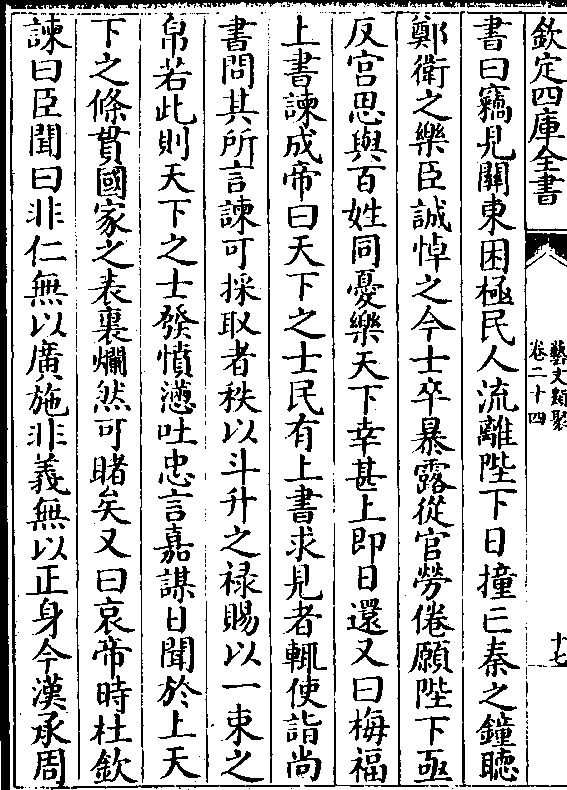 欽定四庫全書
藝文類聚
卷二十四
十七
書曰竊見關東困極民人流離陛下日撞亡秦之鐘聽
鄭衛之樂臣誠悼之今士卒暴露從官勞倦願陛下亟
反宫思與百姓同憂樂天下幸甚上即日還又曰梅福
上書諫成帝曰天下之士民有上書求見者輒使詣尚
書問其所言諫可採取者秩以斗升之禄賜以一束之
帛若此則天下之士發憤懣吐忠言嘉謀日聞於上天
下之條貫國家之表裏爛然可睹矣又曰哀帝時杜欽
諫曰臣聞曰非仁無以廣施非義無以正身今漢承周